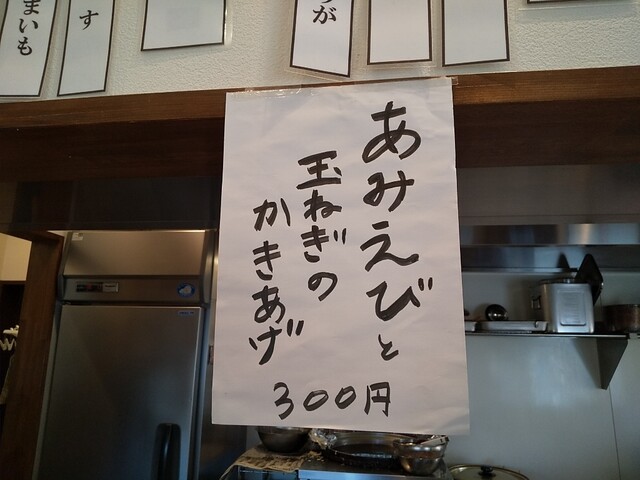 あみえびと
玉ねぎの
かきあげ
300円
が
す
まいも